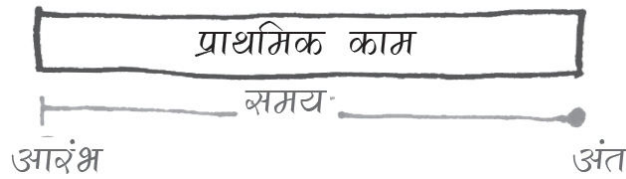 प्राथमिक काम
समय
आरंभ अंत